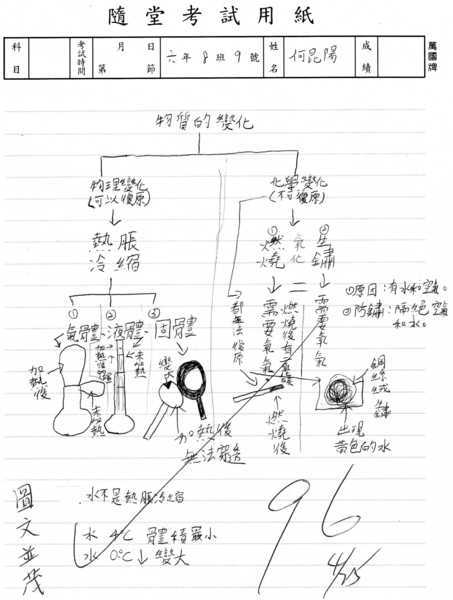 隨堂考試用紙
科目
考試時間 月 日 第 節
六年8班9號
姓名 何昆陽
成績
萬國牌
物質的變化
物理變化
(可以復原)
化學變化
(不可復原)
熱脹
冷縮
①氣體
②液體
③固體
加熱後
未加熱
加熱後
未加熱
變大
加熱後
無法穿過
都無法復原
①燃燒
氧化
②生鏽
需要氧氣
燃燒後有
需要氧氣
燃燒後
①原因:有水和空氣。
②防鏽:隔絕空氣
和水。
鋼絲絨
鏽
出現
黃色的水
水不是熱脹冷縮
水 4℃ 體積最小
水 0℃↓變大
圖文並茂
96
4/25